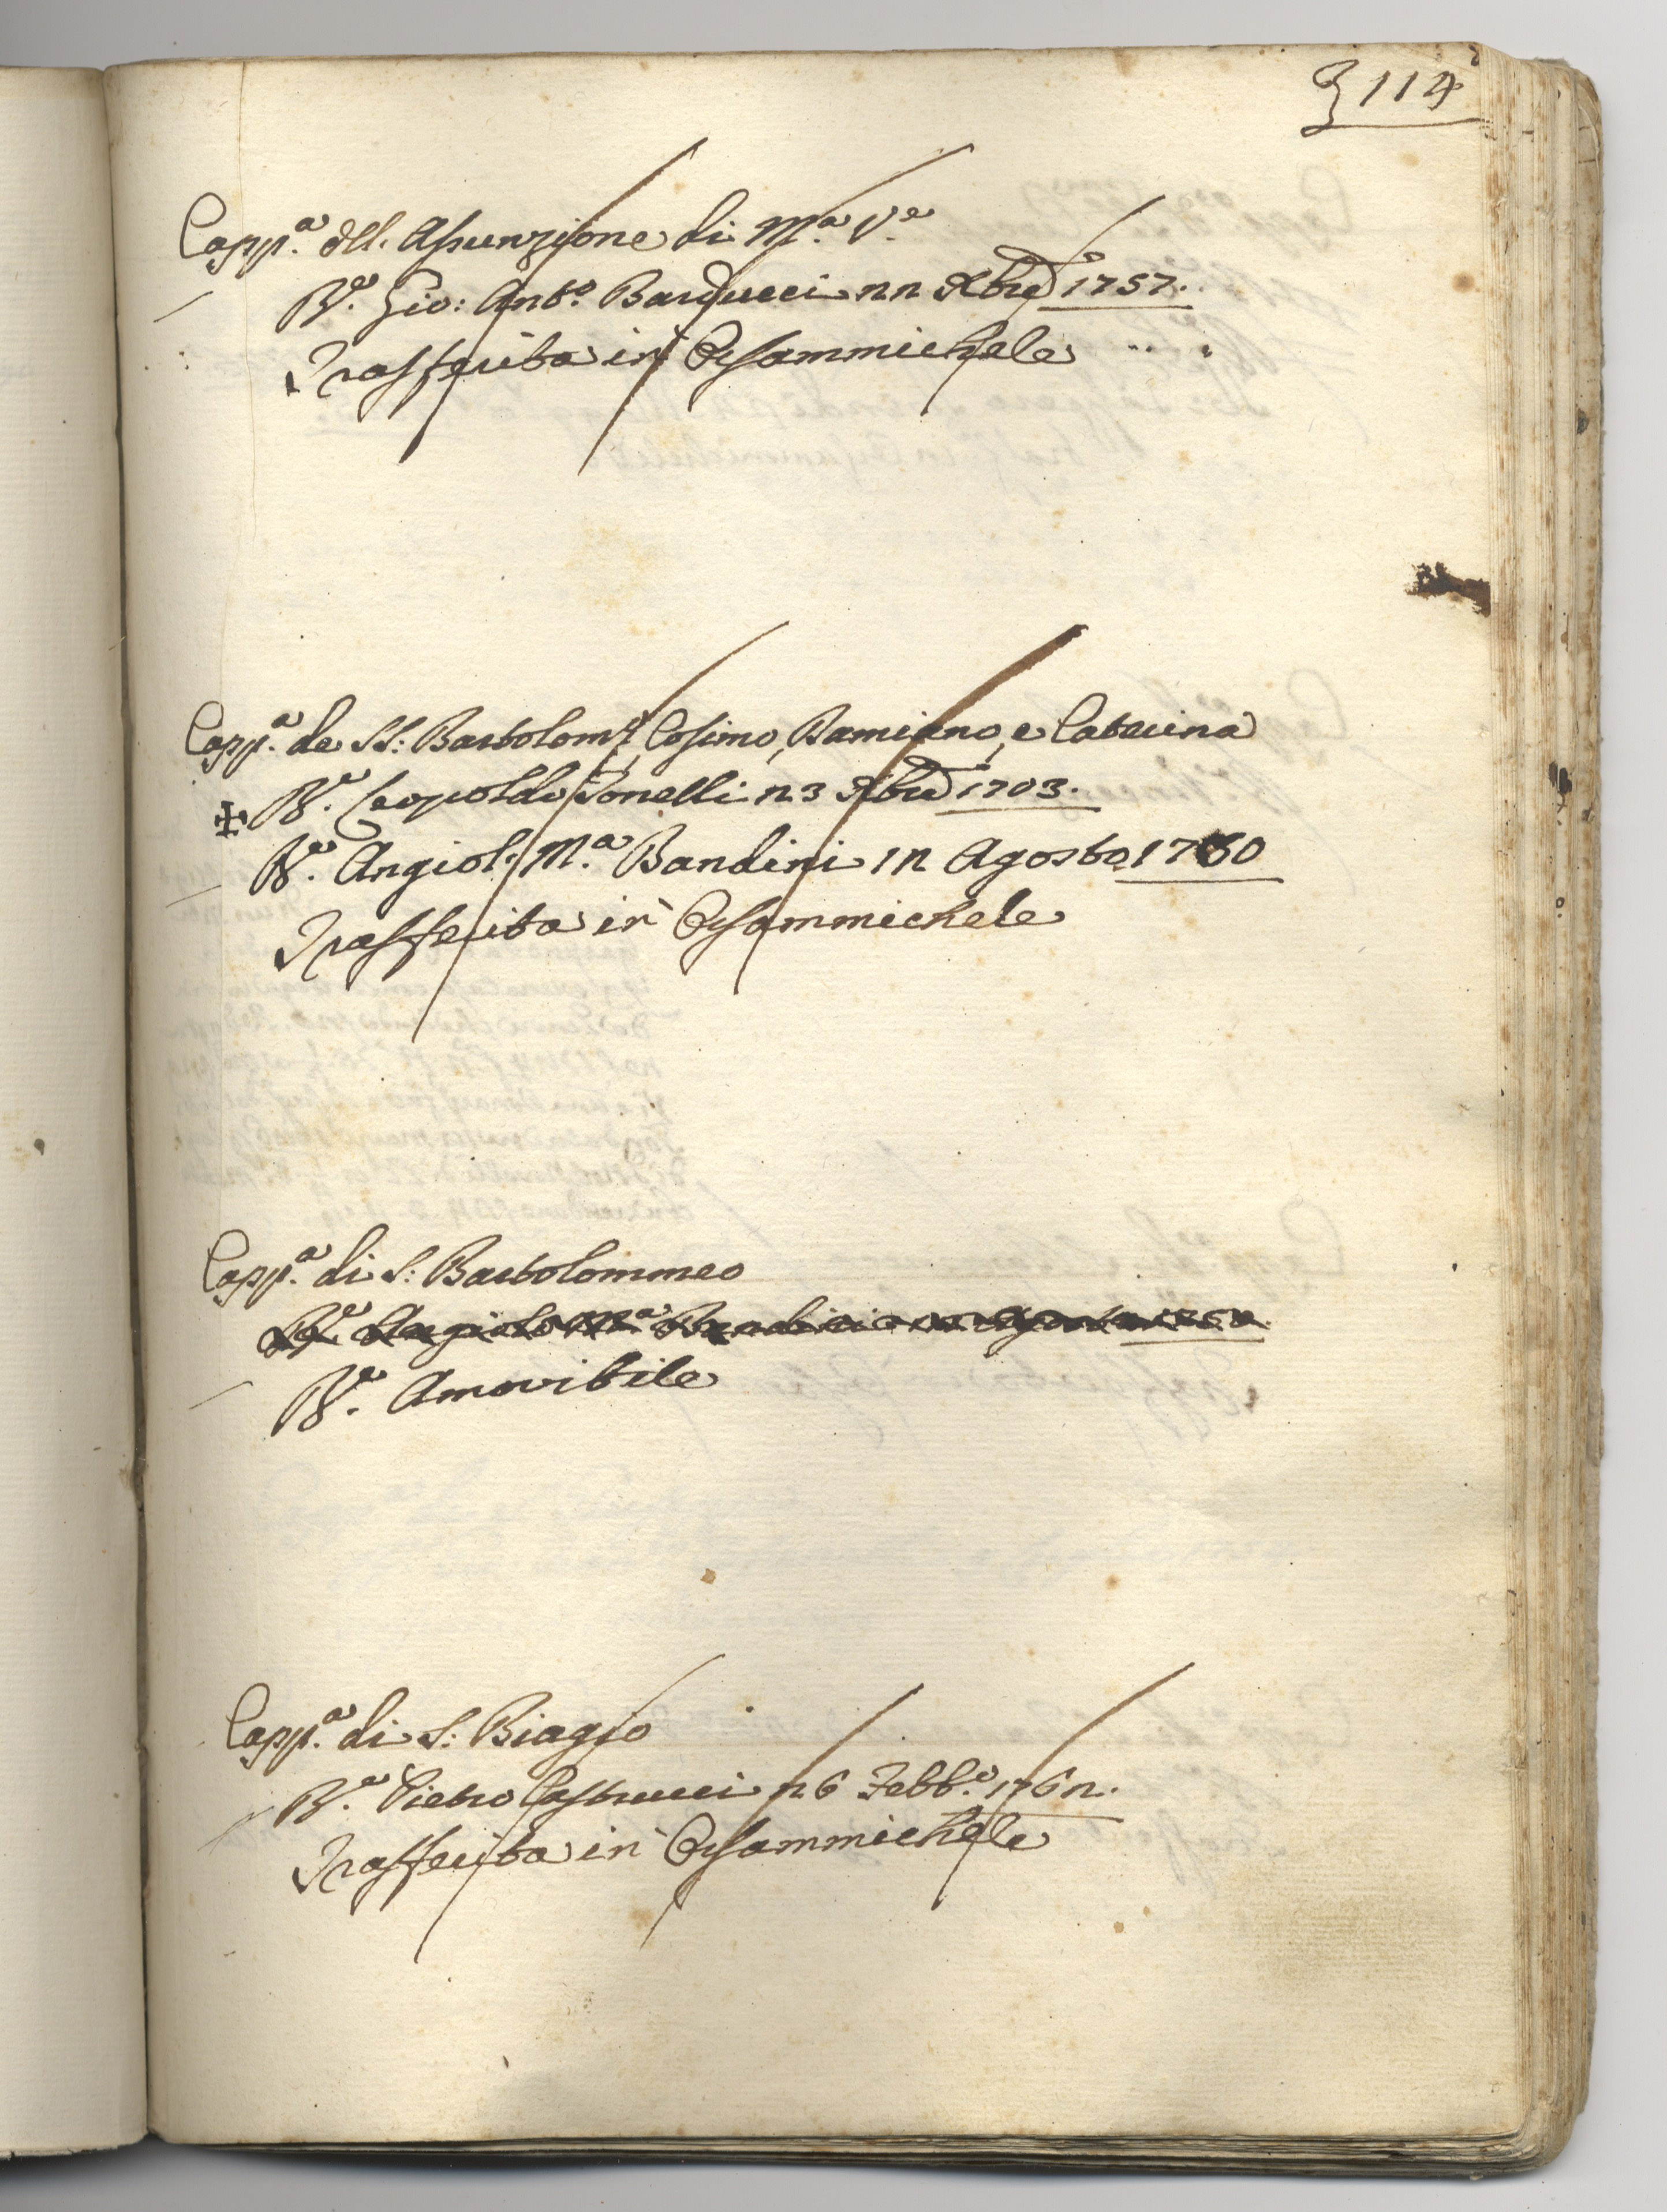 114
Capp.a dell. Assunzione di M.a V.e
R.e Gio: Ant.o Barducci 22 Xbre 1757.
Trasferita in Orsammichele
Capp.a de SS: Bartolom.o, Cosimo, Damiano, e Caterina
R.e Leopoldo Tonelli 23 Xbre 1703.
R.e Angiol. M.a Bandini 12 Agosto 1760
Trasferita in Orsammichele
Capp.a di S: Bartolommeo
R.e Angiolo M.a Bandini
R.e Amovibile
Capp.a di S: Biagio
R.e Pietro Castrucci 26 Febb.o 1762.
Trasferita in Orsammichele